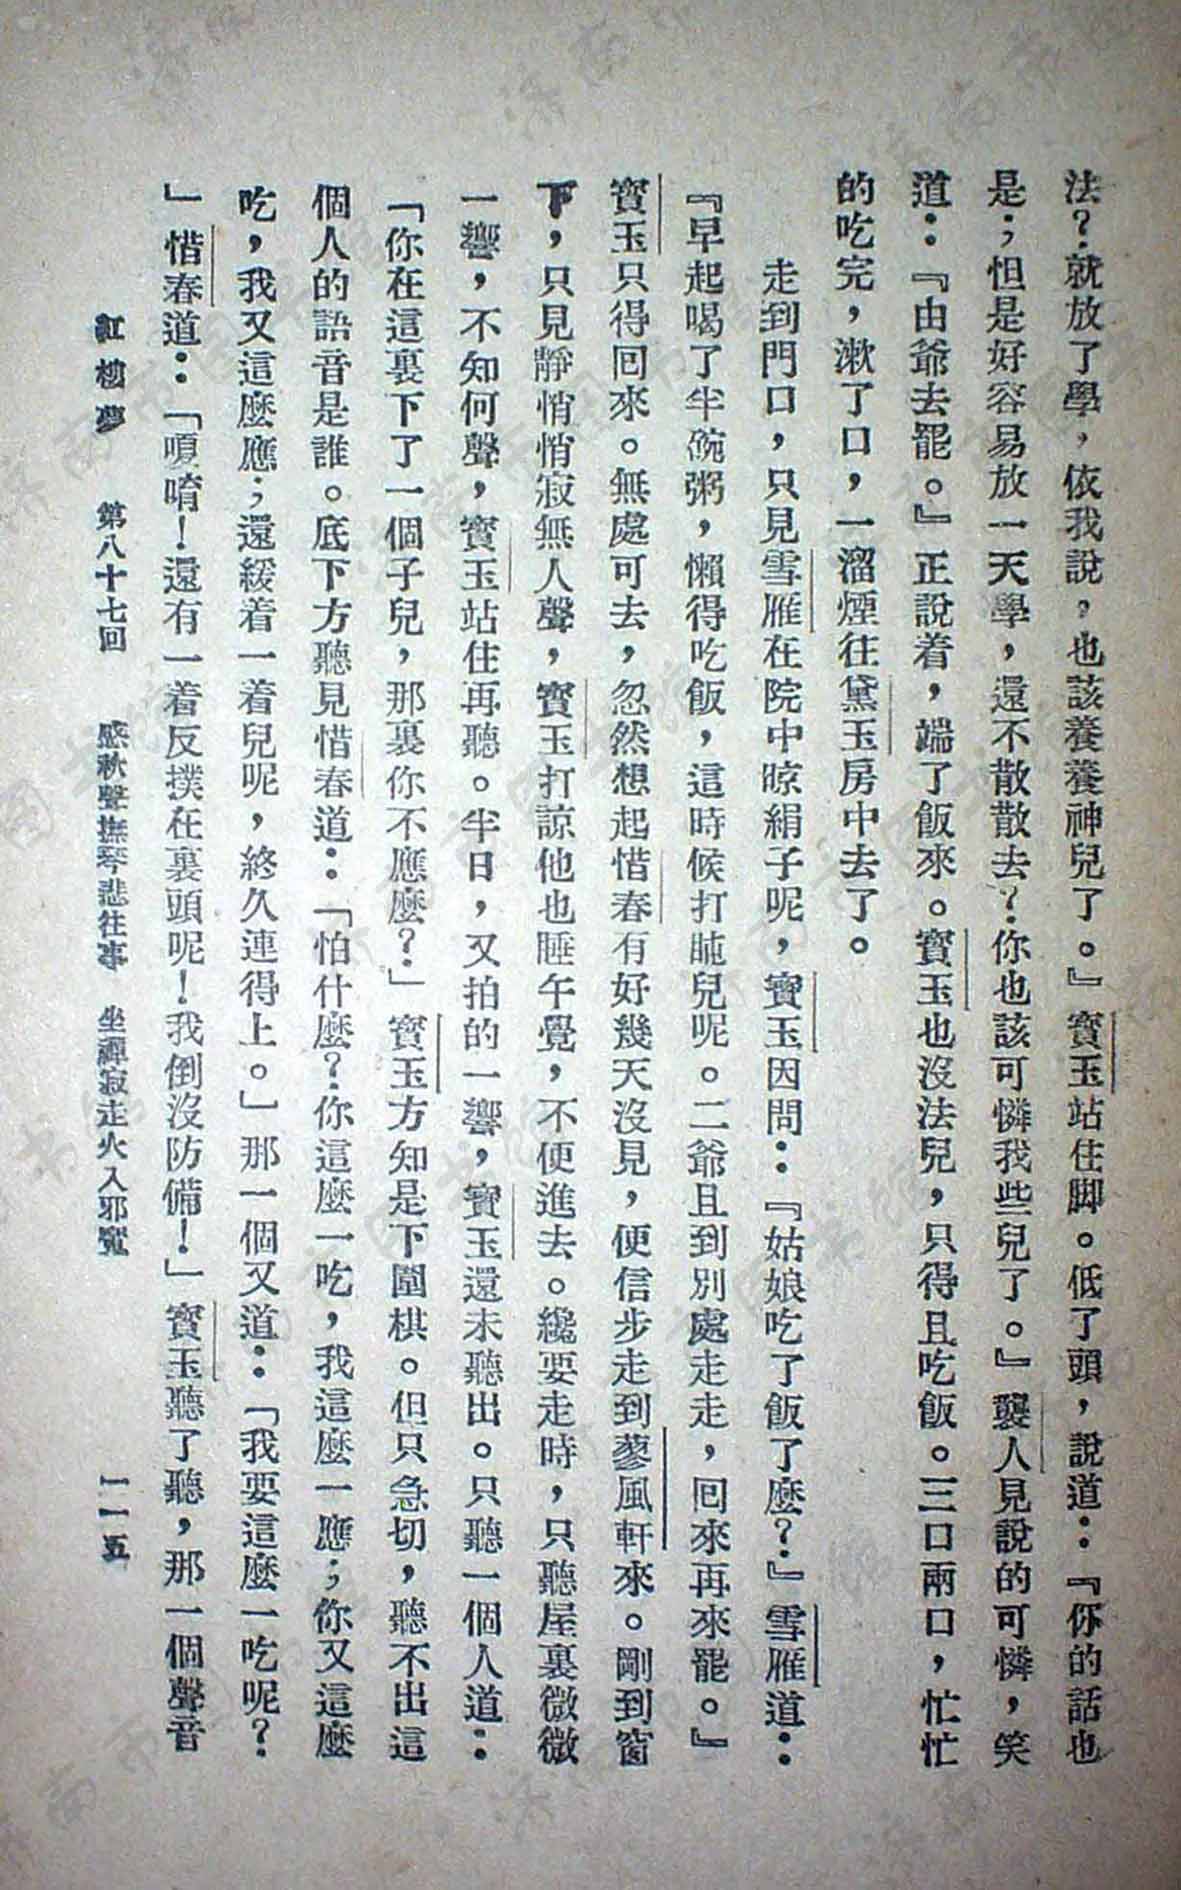 法？就放了學，依我說，也該養養神兒了。』寶玉站住脚。低了頭，說道：『你的話也
是；但是好容易放一天學，還不散散去？你也該可憐我些兒了。』襲人見說的可憐，笑
道：『由爺去罷。』正說着，端了飯來。寶玉也沒法兒，只得且吃飯。三口兩口，忙忙
的吃完，漱了口，一溜煙往黛玉房中去了。
走到門口，只見雪雁在院中晾絹子呢，寶玉因問：『姑娘吃了飯了麼？』雪雁道：
『早起喝了半碗粥，懶得吃飯，這時候打盹兒呢。二爺且到別處走走，回來再來罷。』
寶玉只得回來。無處可去，忽然想起惜春有好幾天沒見，便信步走到蓼風軒來。剛到窗
下，只見靜悄悄寂無人聲，寶玉打諒他也睡午覺，不便進去。纔要走時，只聽屋裏微微
一響，不知何聲，寶玉站住再聽。半日，又拍的一響，寶玉還未聽出。只聽一個人道：
「你在這裏下了一個子兒，那裏你不應麼？」寶玉方知是下圍棋。但只急切，聽不出這
個人的語音是誰。底下方聽見惜春道：「怕什麼？你這麼一吃，我這麼一應；你又這麼
吃，我又這麼應；還緩着一着兒呢，終久連得上。」那一個又道：「我要這麼一吃呢？
」惜春道：「嗄唷！還有一着反撲在裏頭呢！我倒沒防備！」寶玉聽了聽，那一個聲音
紅樓夢 第八十七回 感秋聲撫琴悲往事 坐禪寂走火入邪魔 一一五
济南市图书馆